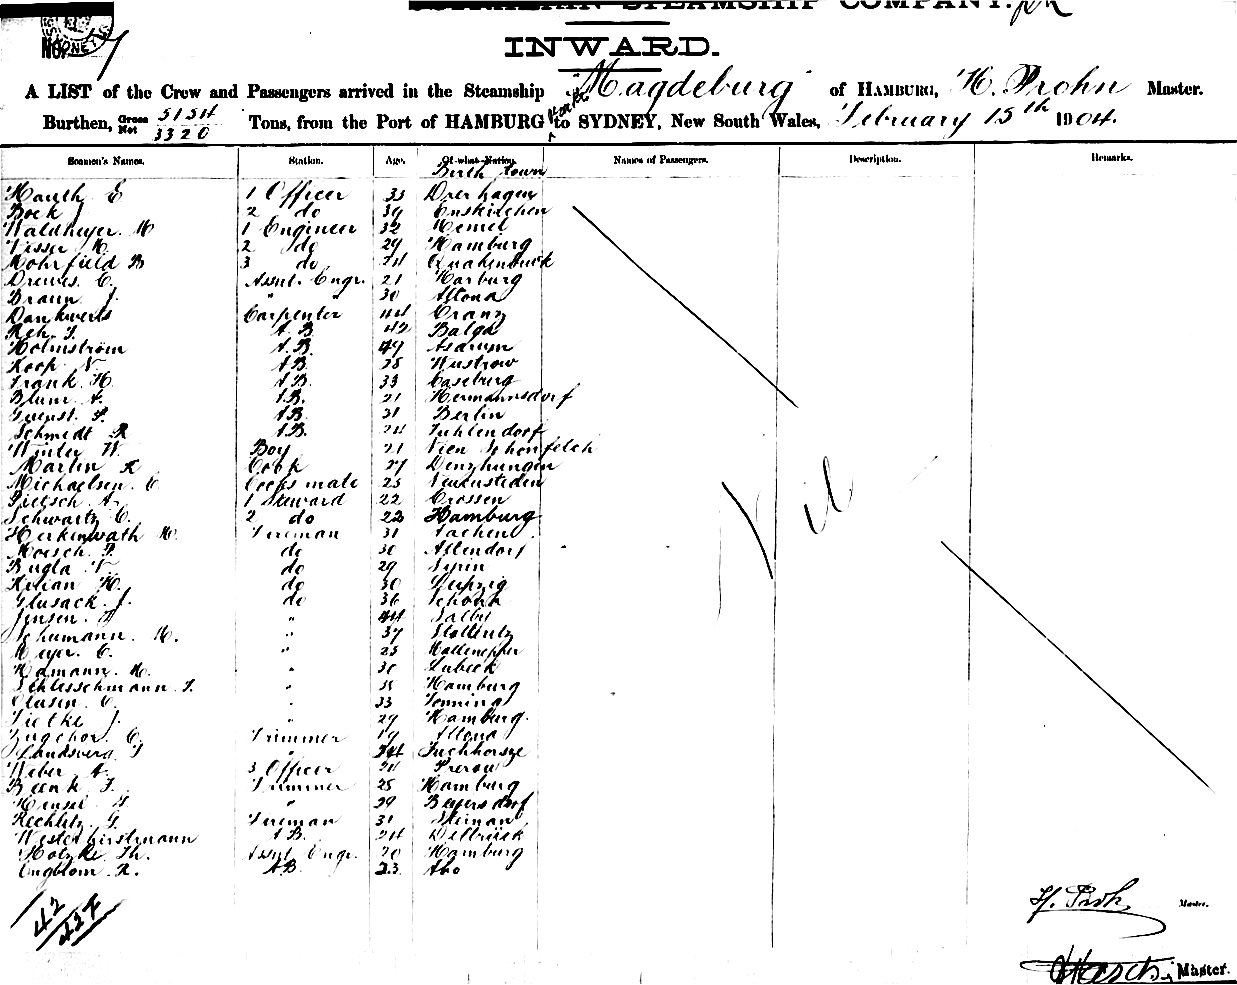 STEAMSHIP COMPANY.
No. 7
INWARD.
A LIST of the Crew and Passengers arrived in the Steamship "Magdeburg" of HAMBURG, H. Prohn Master.
Burthen, Gross 5134 Net 3320 Tons, from the Port of HAMBURG to SYDNEY, New South Wales, February 15th 1904.
Seamen's Names. Station. Age. Of what Nation. Names of Passengers. Description. Remarks.
Birth town
Hauth E 1 Officer 33
Bock J 2 do 39 Euskirchen
Waldheyer. M 1 Engineer 32 Memel
Visser H. 2 do 29 Hamburg
Rohrfield B 3 do 24 Quakenbück
Drewes. C. Assnt. Engr. 21 Harburg
Braun J. " " 30 Altona
Dankwerts Carpenter 44 Cranz
Reh. F. A.B. 42 Balga
Holmström A.B. 49 Asarum
Koop N. A.B. 28 Wustrow
Frank. H. A.B. 33 Caseburg
Blum A. A.B. 21 Hermannsdorf
August. P. A.B. 31 Berlin
Schmidt R A.B. 24 Fuhlendorf
Winter W. Boy 21 Neen Schönfeld
Martin R Cook 27
Michaelsen. C. Cooks mate 25 Neuensteden
Pietsch A. 1 Steward 22 Crossen
Schwartz C. 2 do 23 Hamburg
Herkenwath H. Fireman 31 Aachen.
Moesch. P. do 30 Allendorf
Bugla V do 29 Syrin
Kilian H. do 30 Leipzig
Glusack J. do 36
Jensen. " 44
Schumann. H. " 37
Meyer. C. " 25
Hamann. H. " 30 Lubeck
" 38 Hamburg
Clasen. C. " 33 Tonning
Tietke J. " 29 Hamburg.
Zugehör. C. Trimmer 19 Altona
Landsberg " 34
Weber A. 3 Officer 24 Prerow
Beenk F. Trimmer 25 Hamburg
Hensel " 39 Beyersdorf
Rechlitz G. Fireman 31
Westerhorstmann A.B. 24 Delbrück
Kotzke Th. Assnt. Engr. 20 Hamburg
Engblom R. A.B. 23 Abo
Nil
42
H. Proh Master.
Master.